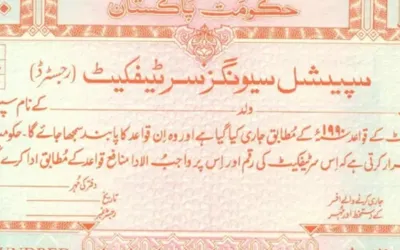 حکومت پاکستان
سپیشل سیونگز سرٹیفکیٹ (رجسٹرڈ)
کے نام
ولد
کے قواعد ۱۹۹۰ء کے مطابق جاری کیا گیا ہے اور وہ ان قواعد کا پابند سمجھا جائے گا۔
قرار کرتی ہے کہ اس سرٹیفکیٹ کی رقم اور اس پر واجب الادا منافع قواعد کے مطابق ادا کرے
جاری کرنے والے افسر
کے دستخط اور مہر
تاریخ
دفتر کی مہر